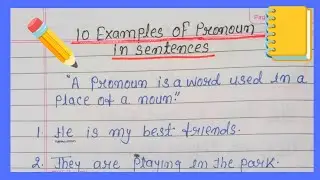 10 Examples of Pronoun
in sentences
"A Pronoun is a word used in a
place of a noun."
1. He is my best friends.
2. They are Playing in the park.